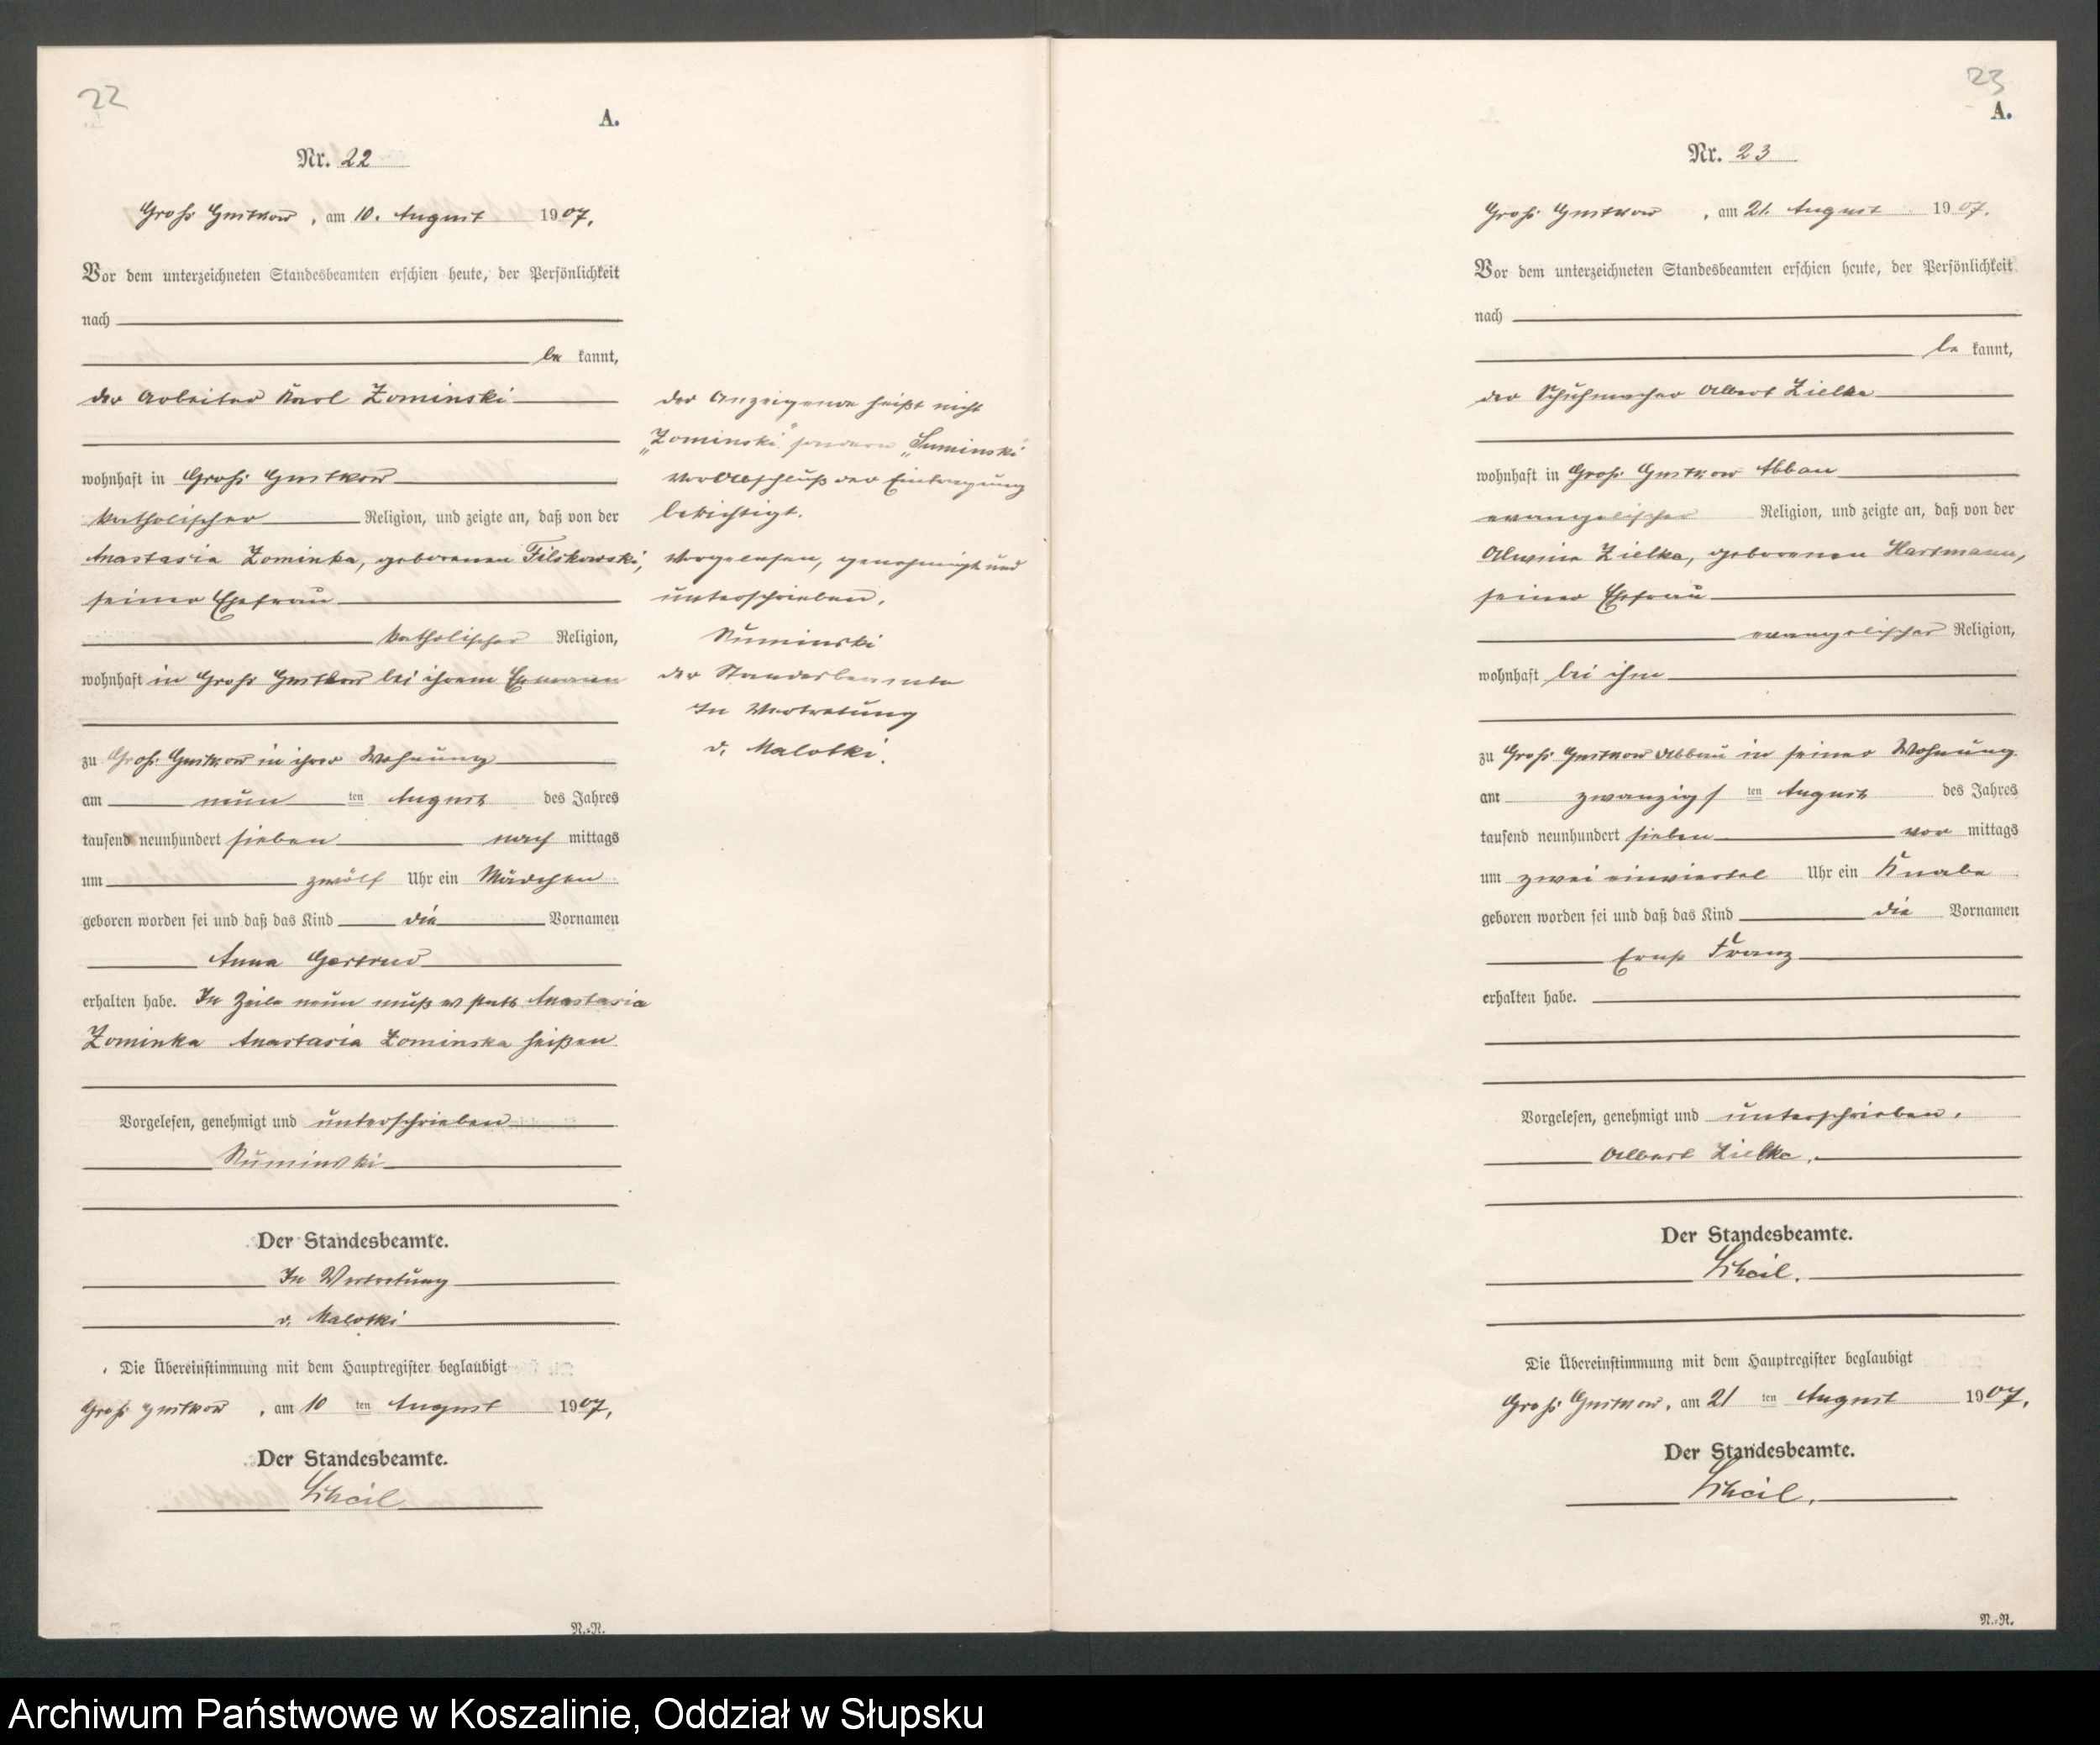 22
A.
Nr. 22
Groß Gustkow, am 10. August 1907.
Vor dem unterzeichneten Standesbeamten erschien heute, der Persönlichkeit
nach
be kannt,
der Arbeiter Karl Zominski
wohnhaft in Groß Gustkow
katholischer Religion, und zeigte an, daß von der
Anastasia Zominka, geborenen Filskowski,
seiner Ehefrau
katholischer Religion,
wohnhaft in Groß Gustkow bei ihrem Ehemann
zu Groß Gustkow in ihrer Wohnung
am neun ten August des Jahres
tausend neunhundert sieben nach mittags
um zwölf Uhr ein Mädchen
geboren worden sei und daß das Kind die Vornamen
Anna Gertrud
erhalten habe. In Zeile neun muß es statt Anastasia
Zominka Anastasia Zominska heißen
Vorgelesen, genehmigt und unterschrieben
Suminski
Der Standesbeamte.
In Vertretung
v. Malotki
Die Übereinstimmung mit dem Hauptregister beglaubigt
Groß Gustkow, am 10 ten August 1907.
Der Standesbeamte.
N.-R.
der Anzeigende heißt nicht
„Zominski" sondern „Suminski"
vor Abschluß der Eintragung
berichtigt.
Vorgelesen, genehmigt und
unterschrieben.
Suminski
der Standesbeamte
In Vertretung
v. Malotki.
23
A.
Nr. 23
Groß Gustkow, am 21. August 1907.
Vor dem unterzeichneten Standesbeamten erschien heute, der Persönlichkeit
nach
be kannt,
der Schuhmacher Albert Zielke
wohnhaft in Groß Gustkow Abbau
evangelischer Religion, und zeigte an, daß von der
Alwine Zielke, geborenen Hartmann,
seiner Ehefrau
evangelischer Religion,
wohnhaft bei ihm
zu Groß Gustkow Abbau in seiner Wohnung
am zwanzigs ten August des Jahres
tausend neunhundert sieben vor mittags
um zwei einviertel Uhr ein Knabe
geboren worden sei und daß das Kind die Vornamen
Ernst Franz
erhalten habe.
Vorgelesen, genehmigt und unterschrieben.
Albert Zielke.
Der Standesbeamte.
Die Übereinstimmung mit dem Hauptregister beglaubigt
Groß Gustkow, am 21 ten August 1907.
Der Standesbeamte.
N.-R.
Archiwum Państwowe w Koszalinie, Oddział w Słupsku